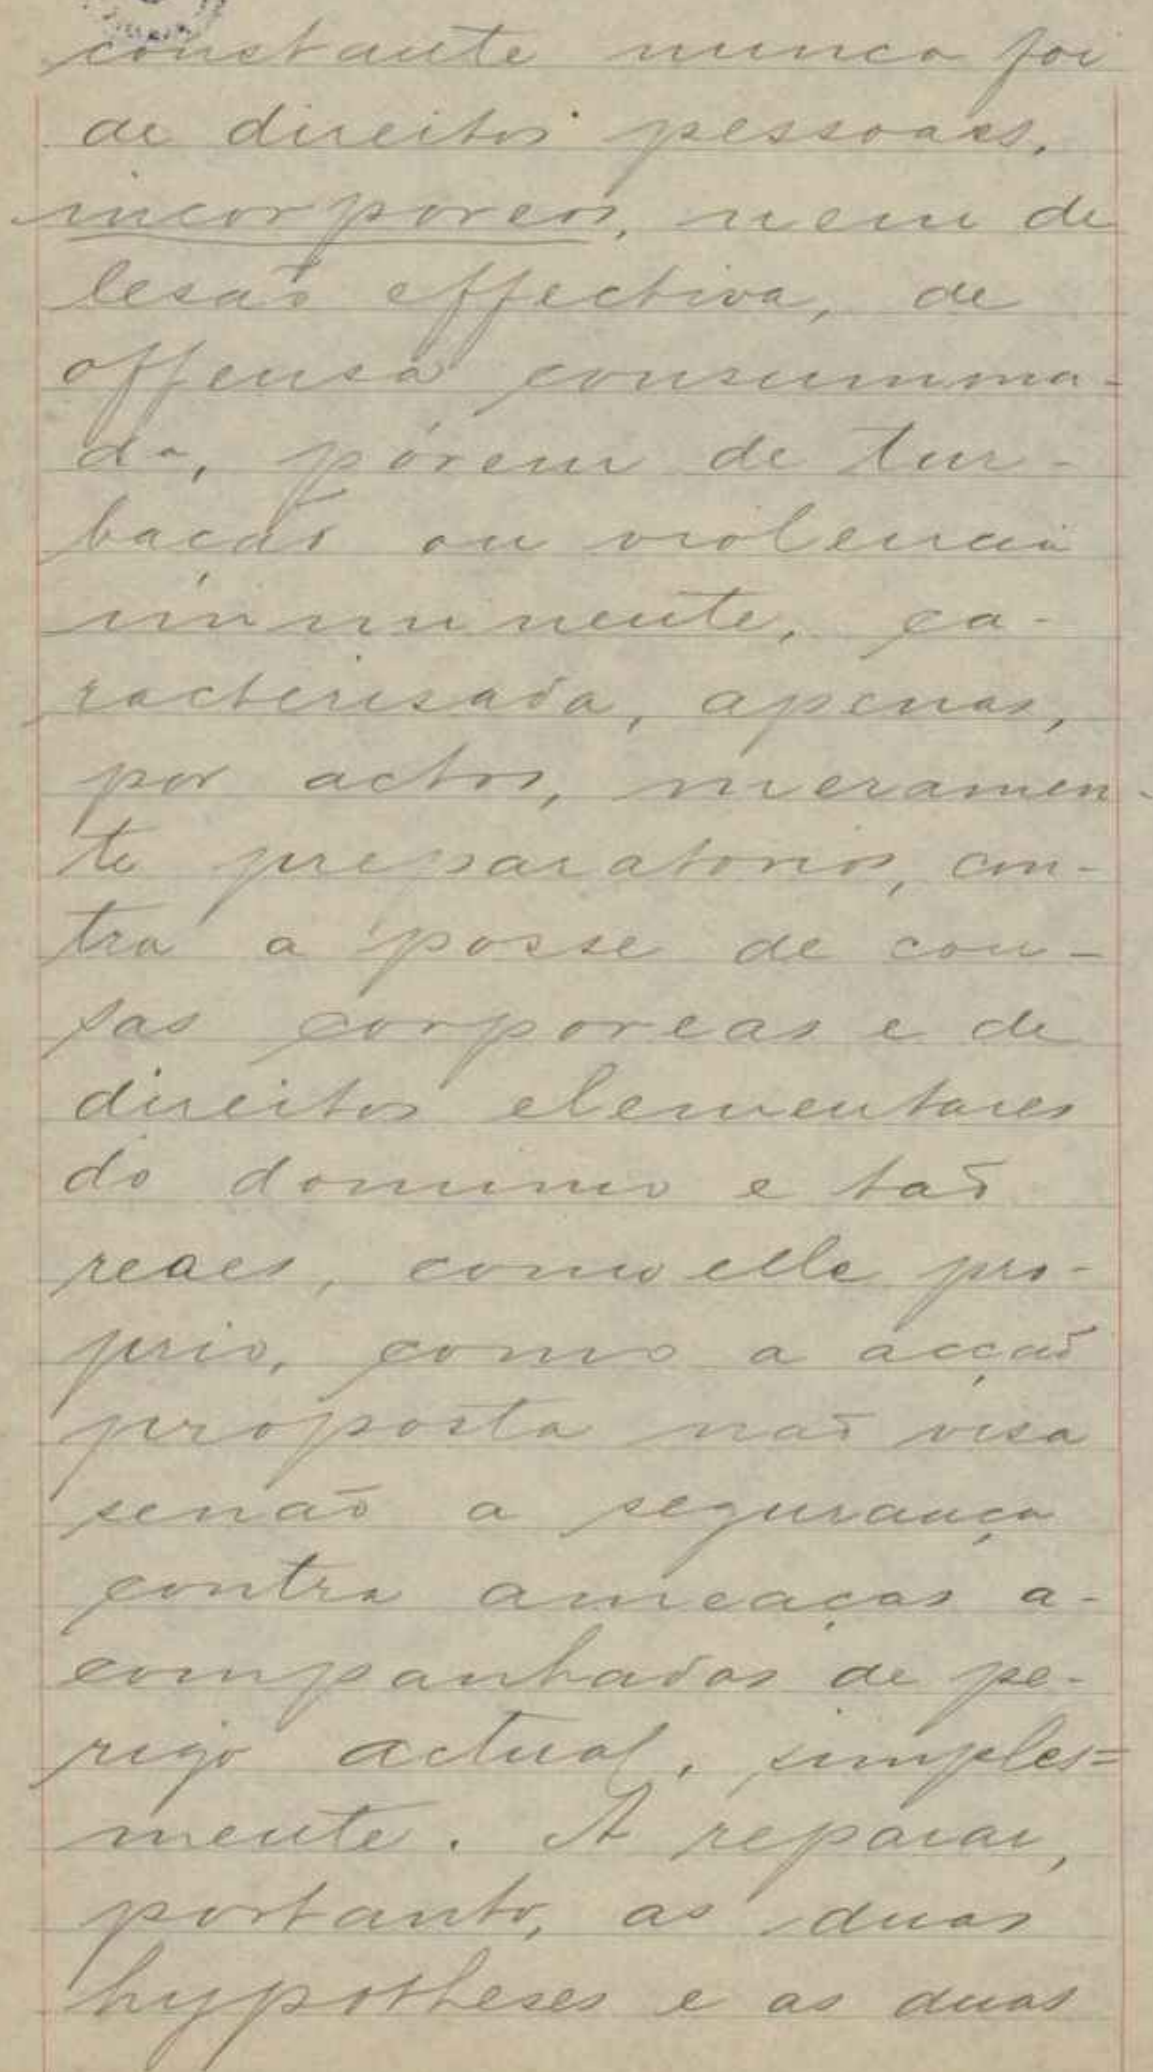 constante nunca foi
de direitos pessoaes,
incorporeos, nem de
lesaõ effectiva, de
offensa consumma-
da, pórem de tur-
baçaõ ou violencia
imminente, ca-
racterisada, apenas,
por actos, meramen-
te preparatorios, con-
tra a posse de cou-
sas corporeas e de
direitos elementares
do dominio e taõ
reaes, como elle pro-
prio, como a acçaõ
proposta naõ visa
senaõ a segurança
contra ameaças a-
companhadas de pe-
rigo actual, simples=
mente. A reparar,
portanto, as duas
hypotheses e as duas